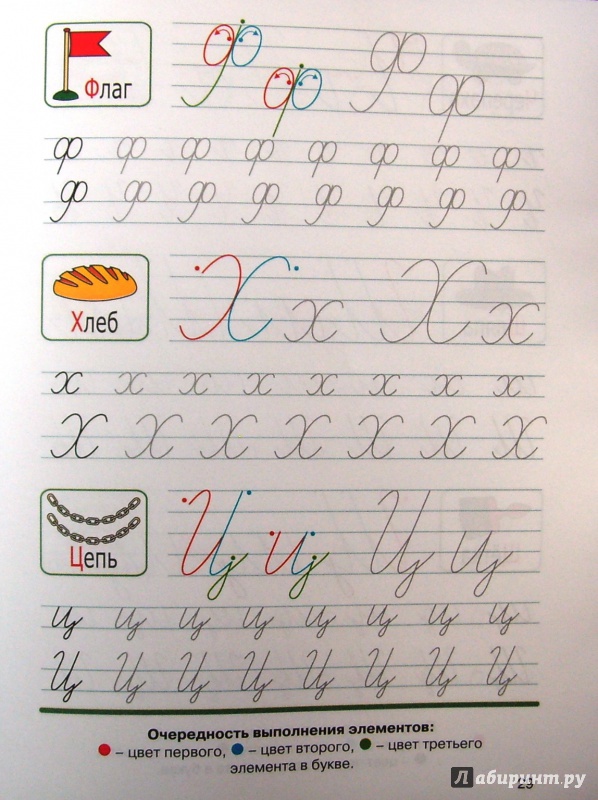 Флаг
Ф ф Ф ф
ф ф ф ф ф ф ф ф
Ф Ф Ф Ф Ф Ф Ф Ф
Хлеб
Х х Х х
х х х х х х х х
Х Х Х Х Х Х Х
Цепь
Ц ц Ц ц
ц ц ц ц ц ц ц ц
Ц Ц Ц Ц Ц Ц Ц Ц
Очередность выполнения элементов:
– цвет первого, – цвет второго, – цвет третьего
элемента в букве.
Лабиринт.ру